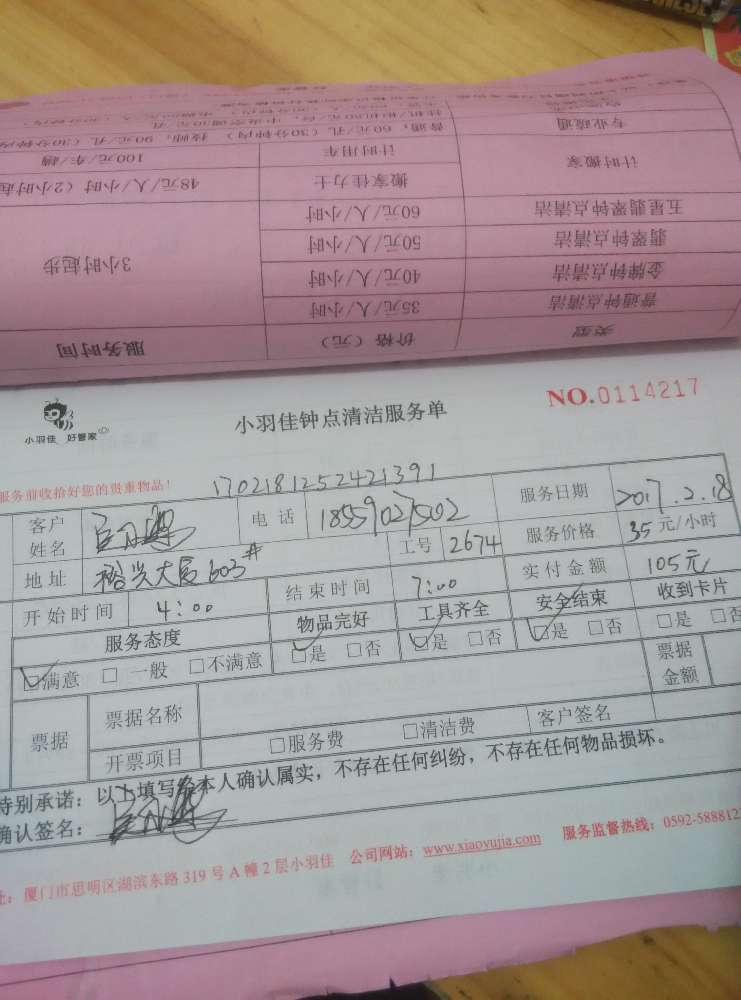 类型 价格（元） 服务时间
普通钟点清洁 35元/人/小时 3小时起步
金牌钟点清洁 40元/人/小时
翡翠钟点清洁 50元/人/小时
五星翡翠钟点清洁 60元/人/小时
计时搬家 搬家佳力士 48元/人/小时（2小时起
计时用车 100元/车/趟
专业疏通 普通，60元/孔（30分钟内） 技师，90元/孔（30分钟内
小羽佳 好管家
小羽佳钟点清洁服务单
NO.0114217
服务前收拾好您的贵重物品！
1702181252421391
客户姓名 电话 18559027502 服务日期 2017.2.18
地址 裕兴大厦603# 工号 2674 服务价格 35元/小时
开始时间 4:00 结束时间 7:00 实付金额 105元
服务态度 物品完好 工具齐全 安全结束 收到卡片
☑满意 □一般 □不满意 ☑是 □否 ☑是 □否 ☑是 □否 □是 □否
票据 票据名称 票据金额
开票项目 □服务费 □清洁费 客户签名
特别承诺：以上填写经本人确认属实，不存在任何纠纷，不存在任何物品损坏。
确认签名：
址：厦门市思明区湖滨东路319号A幢2层小羽佳 公司网站：www.xiaoyujia.com 服务监督热线：0592-588812